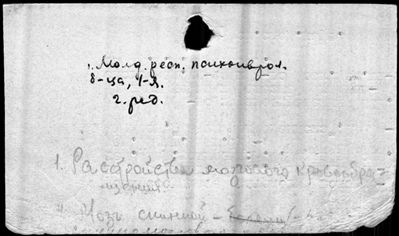 Молд. респ. психоневрол.
б-ца, 1-я.
г. ред.
1. Расстройства мозгового кровообра-
щения
Мозг спинной -